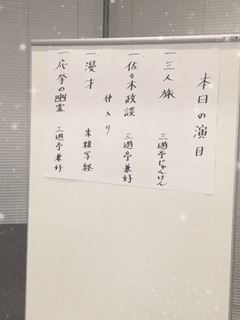 本日の演目
一三人旅 三遊亭じゃんけん
一佐々木政談 三遊亭兼好
仲入り
一漫才 米粒写経
一応挙の幽霊 三遊亭兼好